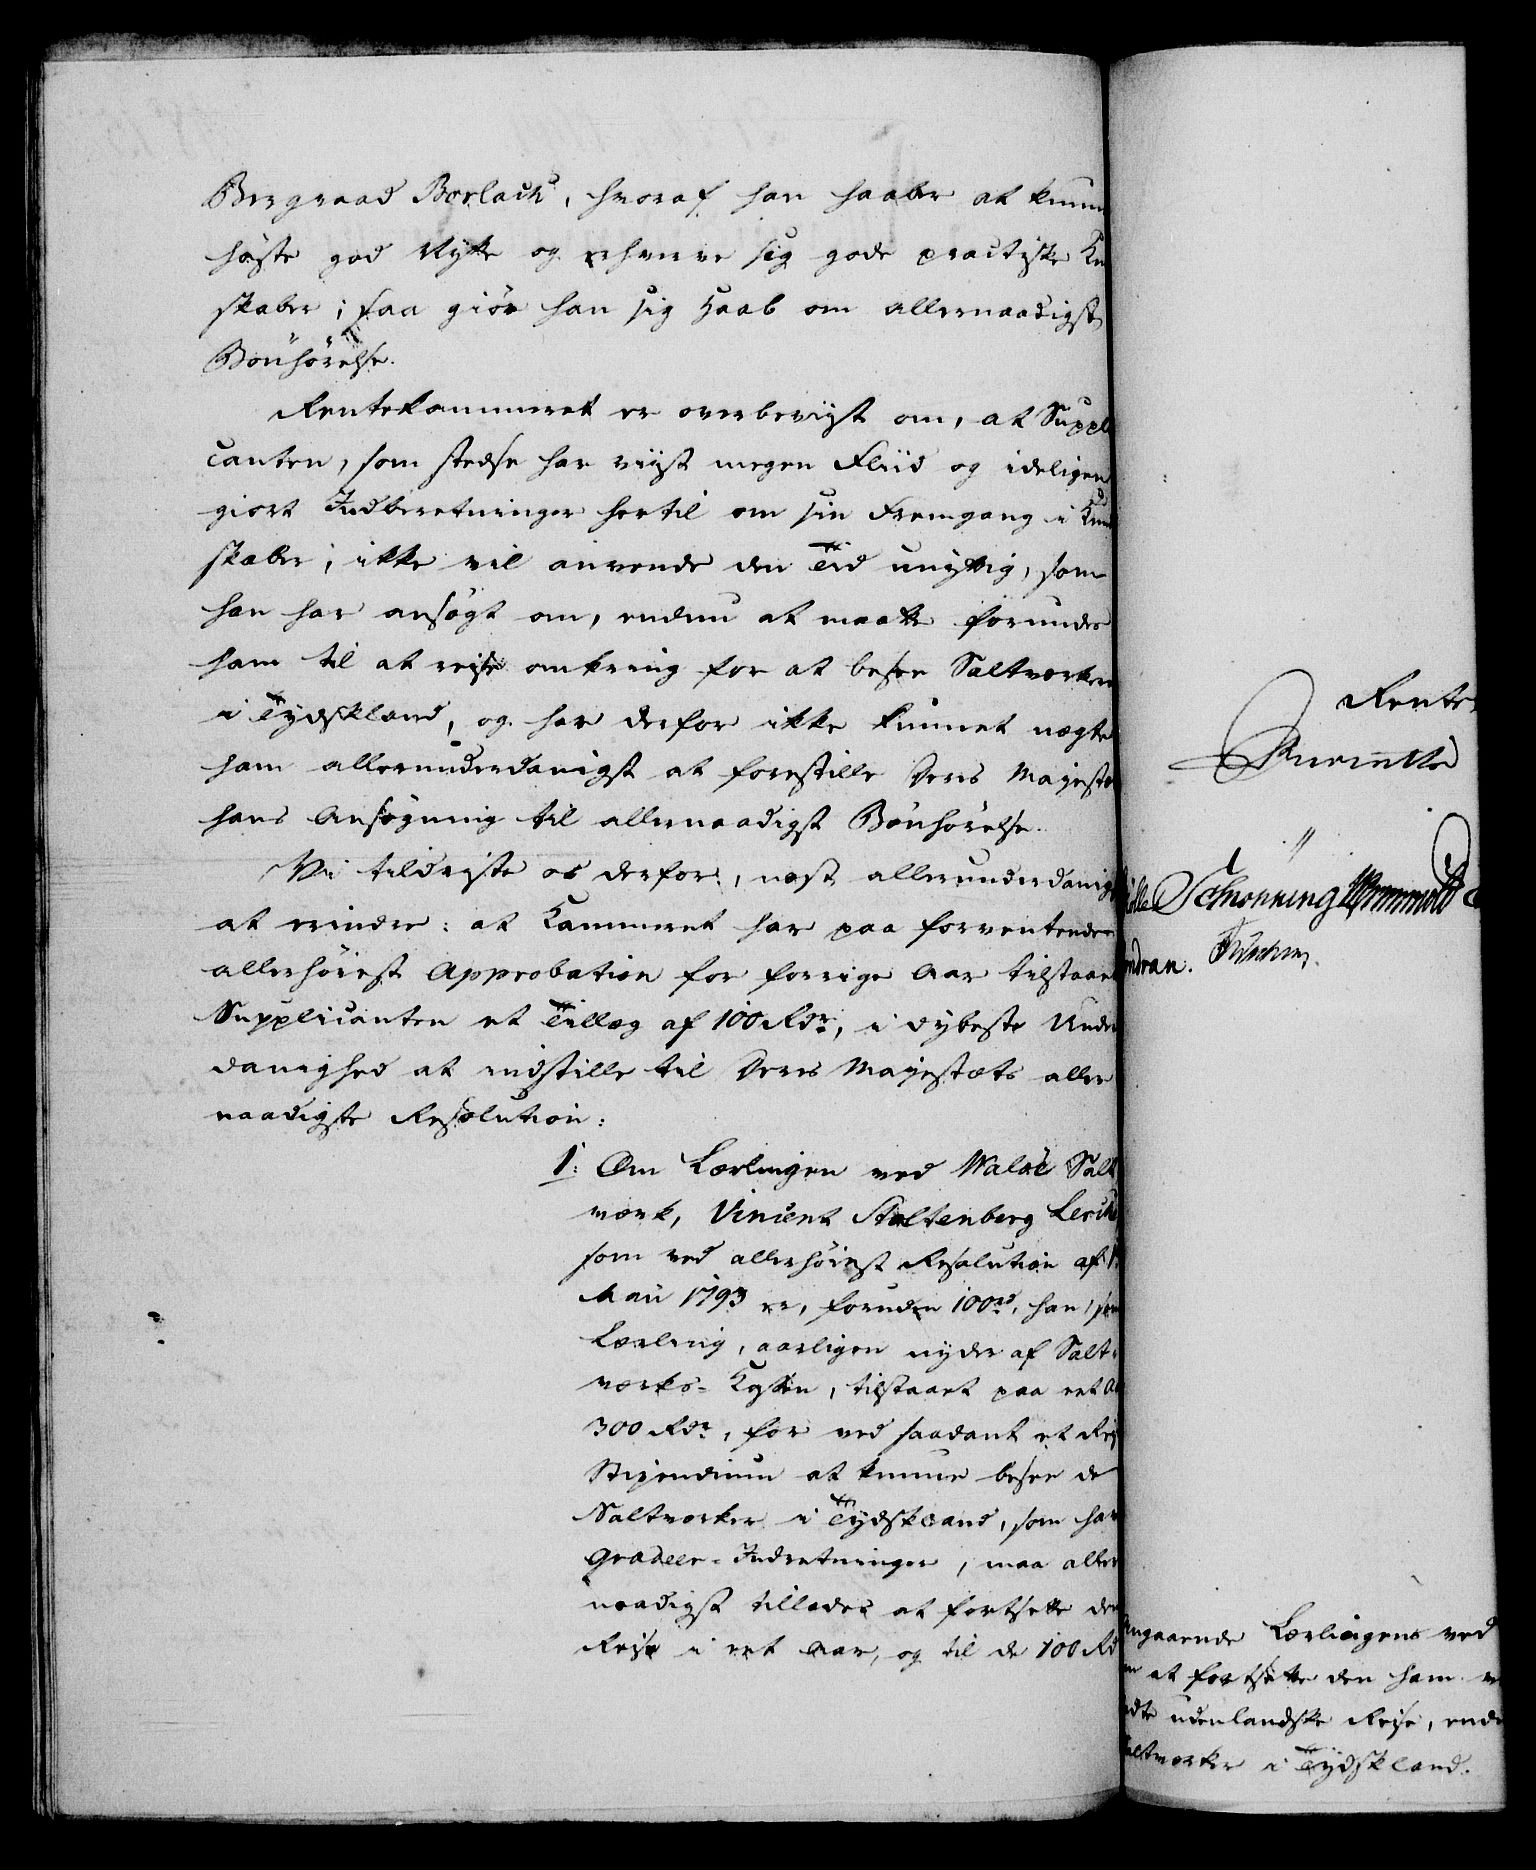 Bergraad Borlach, hvoraf han haaber at kunne
høste god Nytte og erhverve sig gode practiske Kn
skaber; saa giør han sig Haab om allernaadigst
Bönhörelse.
Rentekammeret er overbeviist om, at Suppli
canten, som stedse har viist megen Fliid og ideligen
giort Indberetninger hertil om sin Fremgang i Kund
skaber, ikke vil anvende den Tid unyttig, som
han har ansøgt om, endnu at maatte forundes
ham til at reise omkring for at besee Saltværkerne
i Tydskland, og har derfor ikke kunnet nægte
ham allerunderdanigst at forestille Deres Majestæt
hans Ansøgning til allernaadigst Bönhörelse.
Vi tildriste os derfor, næst allerunderdanigst
at erindre: at Kammeret har paa forventende
allerhöiest Approbation for forrige Aar tilstaaet
Supplicanten et Tillæg af 100 Rdr, i dybeste Under
danighed at indstille til Deres Majestæts aller
naadigste Resolution:
1: Om Lærlingen ved Walöe Salt
værk, Vincent Stoltenberg Lerche
som ved allerhöiest Resolution af 1
Maii 1793 er, foruden 100 rd, han, som
Lærling, aarligen nyder af Salt-
værks-Kassen, tilstaaet paa eet Aar
300 Rdr, for ved saadant et Reise
Stipendium at kunne besee de
Saltværker i Tydskland, som har
Gradeer-Indretninger, maa aller
naadigst tillades at fortsette den
Reise i eet Aar, og til de 100 Rd
Rente
Schønning Wormskiold
ndran.
Angaaende Lærlingens ved
at fortsætte den ham
udenlandske Reise, end
Saltværker i Tydskland.